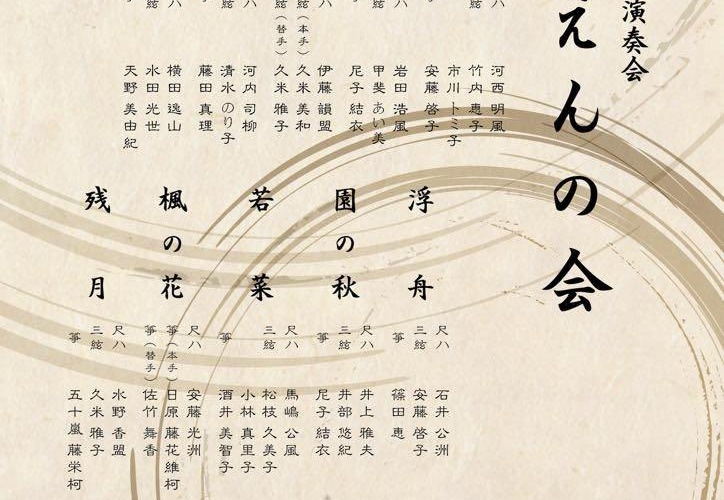 演奏会
えんの会
河西 明風
竹内 恵子
市川 トミ子
安藤 啓子
岩田 浩風
甲斐 あい美
尼子 結衣
伊藤 韻盟
絃(本手) 久米 美和
絃(替手) 久米 雅子
河内 司柳
清水 のり子
藤田 真理
横田 逸山
水田 光世
天野 美由紀
浮舟
尺八 石井 公洲
三絃 安藤 啓子
箏 篠田 恵
園の秋
尺八 井上 雅夫
三絃 井部 悠紀
箏 尼子 結衣
若菜
尺八 馬嶋 公風
三絃 松枝 久美子
小林 真里子
箏 酒井 美智子
楓の花
尺八 安藤 光洲
箏(本手) 日原 藤花維柯
箏(替手) 佐竹 舞香
残月
尺八 水野 香盟
三絃 久米 雅子
箏 五十嵐 藤栄柯